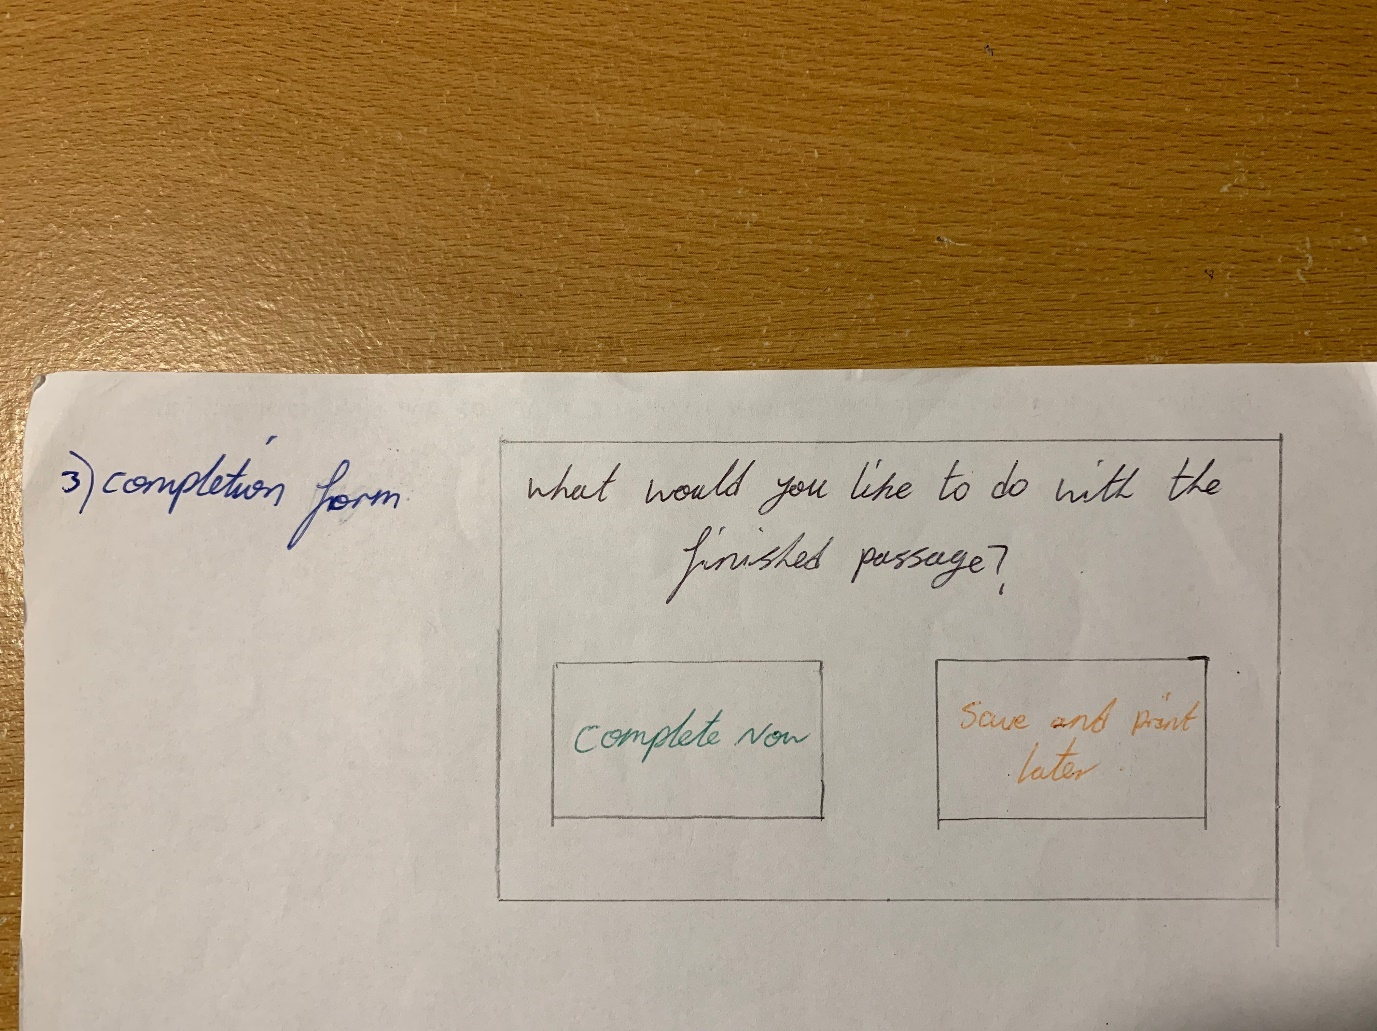 3) completion form
what would you like to do with the
finished passage?
Complete Now
Save and print
later